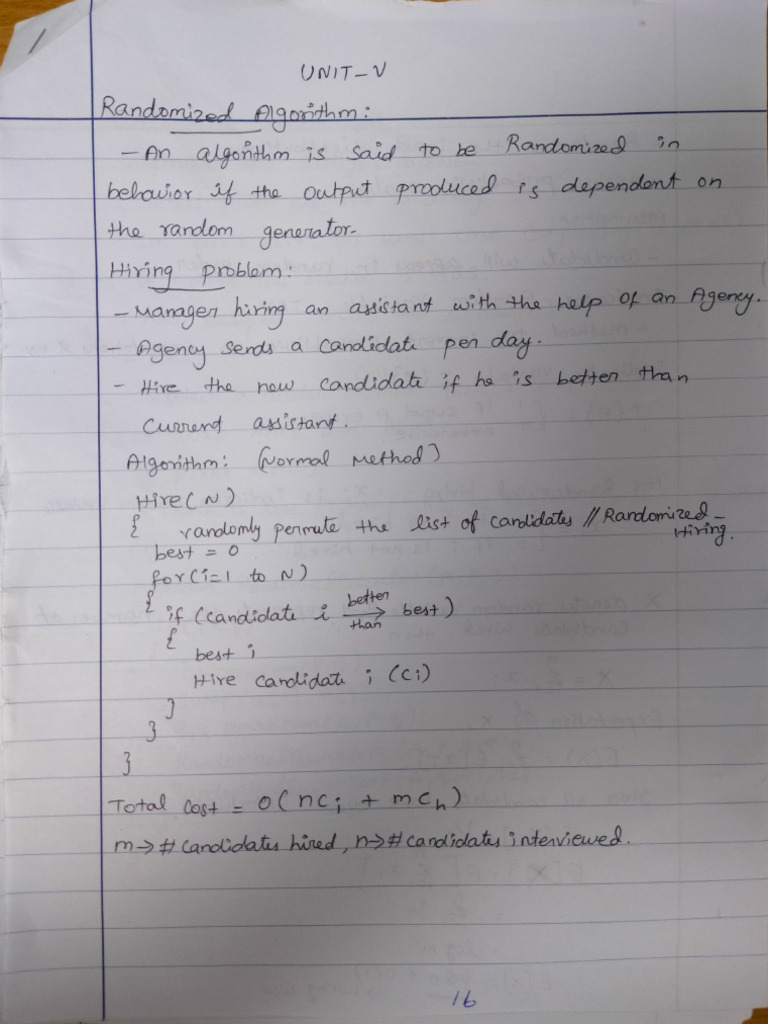 1
UNIT-V
Randomized Algorithm:
- An algorithm is said to be Randomized in
behavior if the output produced is dependent on
the random generator.
Hiring problem:
- Manager hiring an assistant with the help of an Agency.
- Agency sends a candidate per day.
- Hire the new candidate if he is better than
current assistant.
Algorithm: (Normal Method)
Hire(N)
{ randomly permute the list of candidates // Randomized-
Hiring.
best = 0
for(i=1 to N)
{ if (candidate i better than → best)
{
best i
Hire candidate i (Ci)
}
}
}
Total cost = O(nci + mch)
m→# candidates hired, n→# candidates interviewed.
16